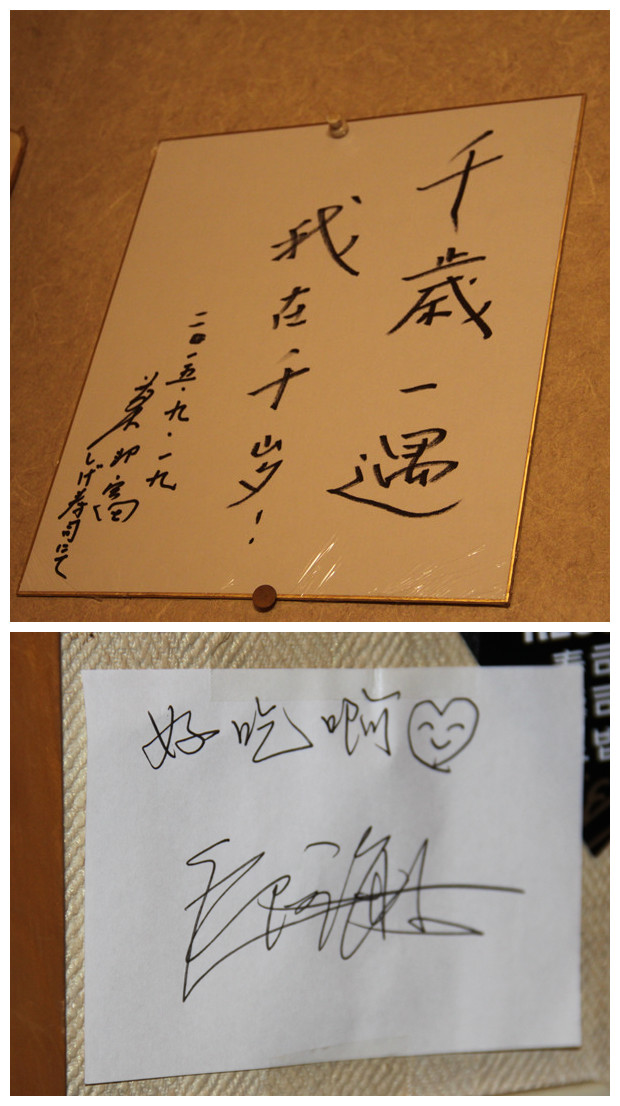 千歳一遇
我在千岁!
二〇一五・九・一九
しげ寿司にて
好吃啊